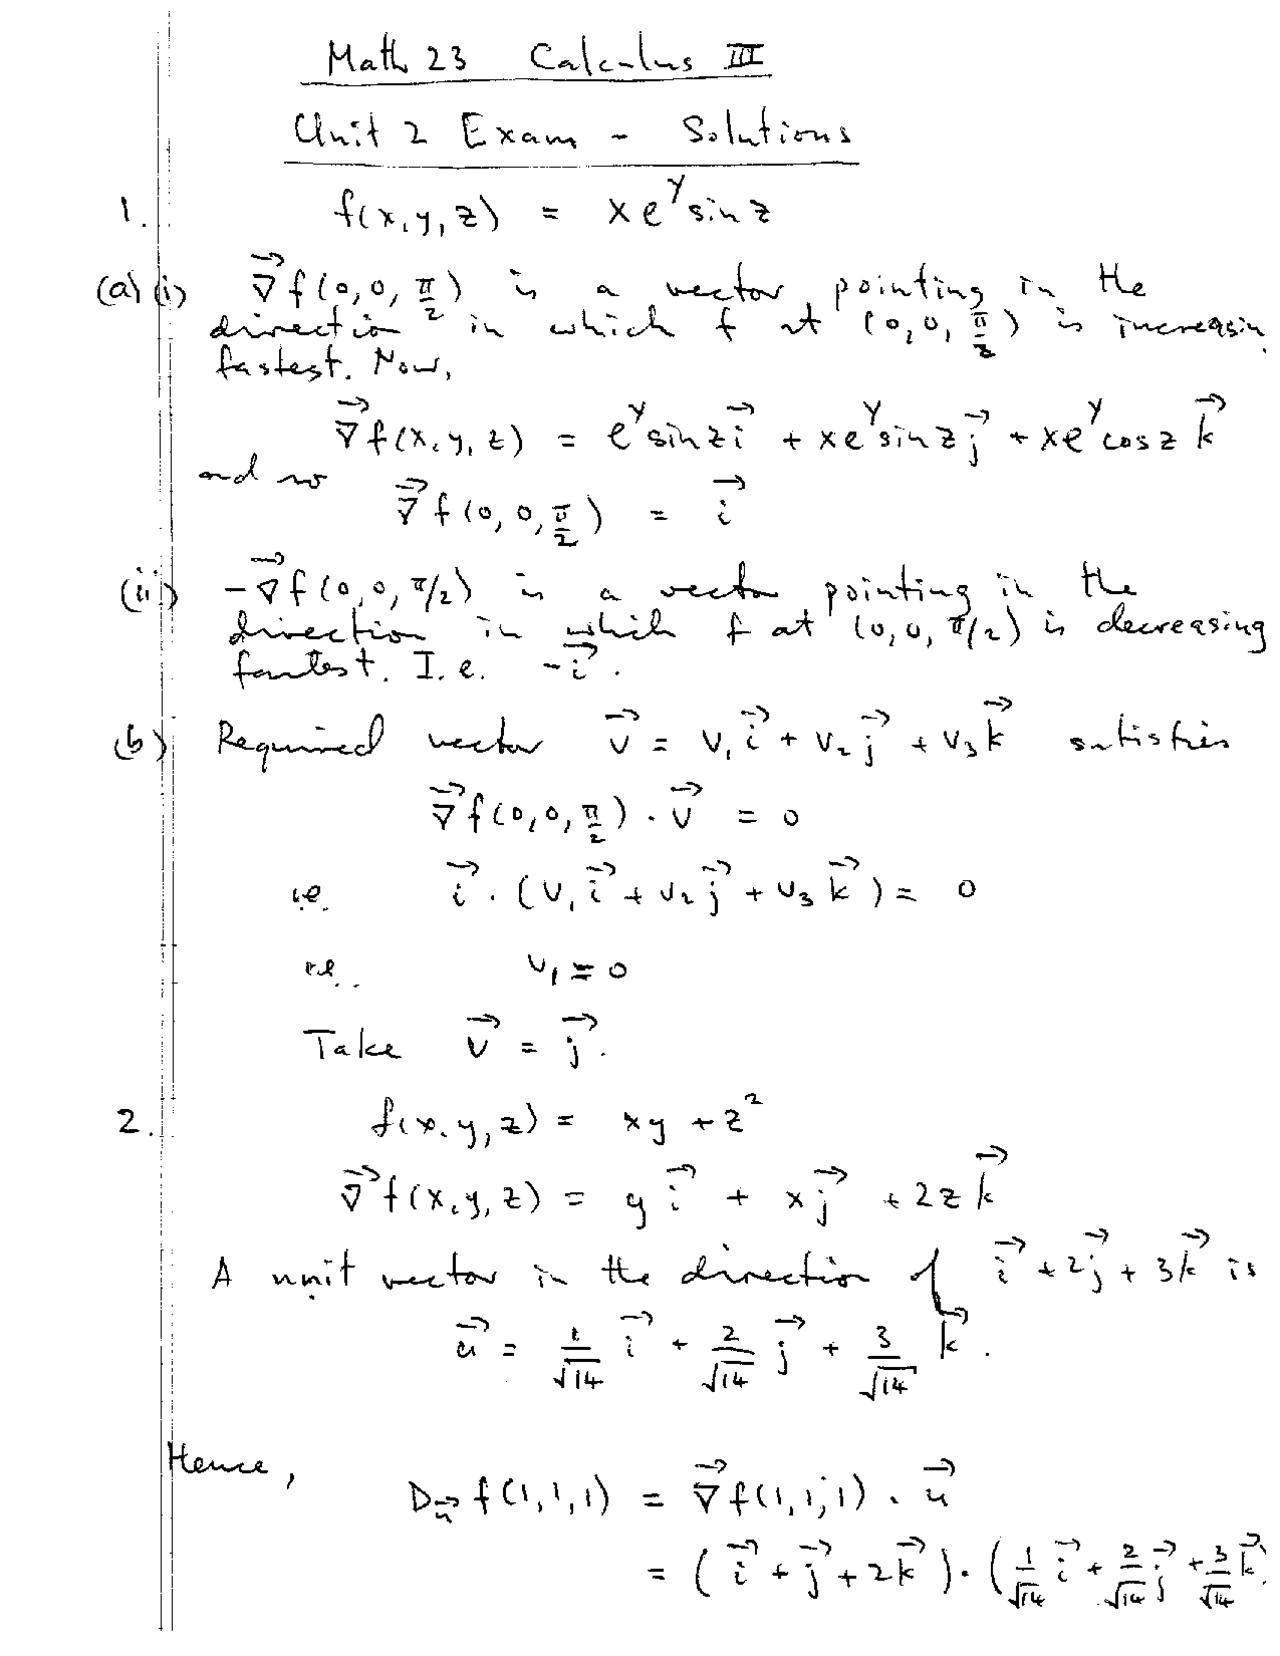 Math 23 Calculus III
Unit 2 Exam - Solutions
1. f(x,y,z) = xe^y sin z
(a)(i) ∇⃗f(0,0,π/2) is a vector pointing in the
direction in which f at (0,0,π/2) is increasin
fastest. Now,
∇⃗f(x,y,z) = e^y sin z i⃗ + xe^y sin z j⃗ + xe^y cos z k⃗
and so
∇⃗f(0,0,π/2) = i⃗
(ii) -∇⃗f(0,0,π/2) is a vector pointing in the
direction in which f at (0,0,π/2) is decreasing
fastest. I.e. -i⃗.
(b) Required vector v⃗ = v₁i⃗ + v₂j⃗ + v₃k⃗ satisfies
∇⃗f(0,0,π/2) · v⃗ = 0
i.e. i⃗ · (v₁i⃗ + v₂j⃗ + v₃k⃗) = 0
i.e. v₁ = 0
Take v⃗ = j⃗.
2. f(x,y,z) = xy + z²
∇⃗f(x,y,z) = y i⃗ + x j⃗ + 2z k⃗
A unit vector in the direction of i⃗ + 2j⃗ + 3k⃗ is
u⃗ = 1/√14 i⃗ + 2/√14 j⃗ + 3/√14 k⃗.
Hence,
D_u⃗ f(1,1,1) = ∇⃗f(1,1,1) · u⃗
= (i⃗ + j⃗ + 2k⃗) · (1/√14 i⃗ + 2/√14 j⃗ + 3/√14 k⃗)